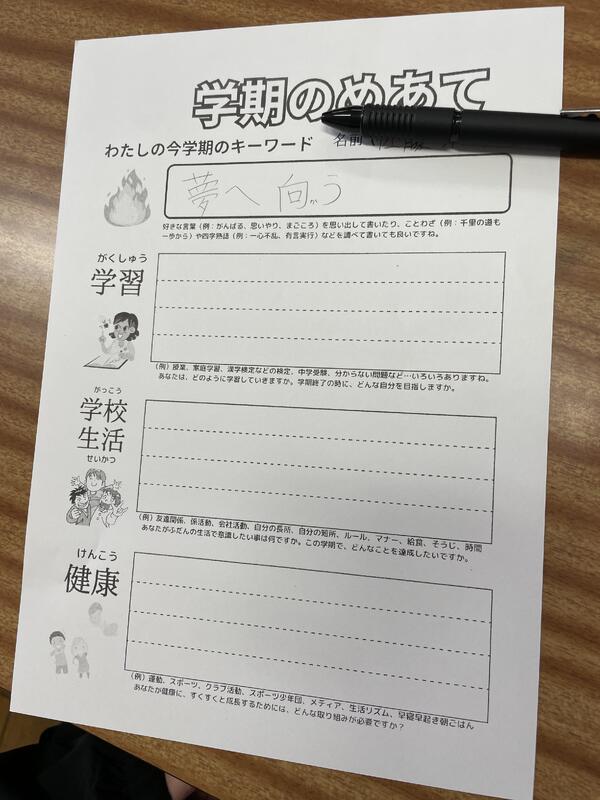 学期のめあて
わたしの今学期のキーワード 名前
夢へ向かう
好きな言葉（例：がんばる、思いやり、まごころ）を思い出して書いたり、ことわざ（例：千里の道も
一歩から）や四字熟語（例：一心不乱、有言実行）などを調べて書いても良いですね。
がくしゅう
学習
（例）授業、家庭学習、漢字検定などの検定、中学受験、分からない問題など…いろいろありますね。
あなたは、どのように学習していきますか。学期終了の時に、どんな自分を目指しますか。
がっこう
学校
生活
せいかつ
（例）友達関係、係活動、会社活動、自分の長所、自分の短所、ルール、マナー、給食、そうじ、時間
あなたがふだんの生活で意識したい事は何ですか。この学期で、どんなことを達成したいですか。
けんこう
健康
（例）運動、スポーツ、クラブ活動、スポーツ少年団、メディア、生活リズム、早寝早起き朝ごはん
あなたが健康に、すくすくと成長するためには、どんな取り組みが必要ですか？